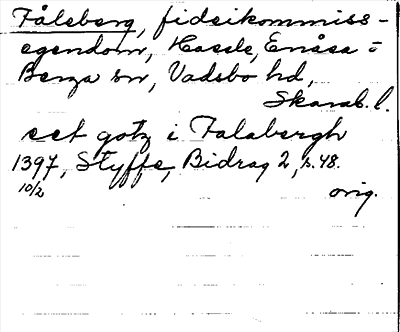 Fålsberg, fideikommiss-
egendom, Hassle, Enåsa o
Berga snr, Vadsbo hd,
Skarab. l.
eet gotz i Falabergh
1397, Styffe, Bidrag 2, s. 48.
10/2 orig.